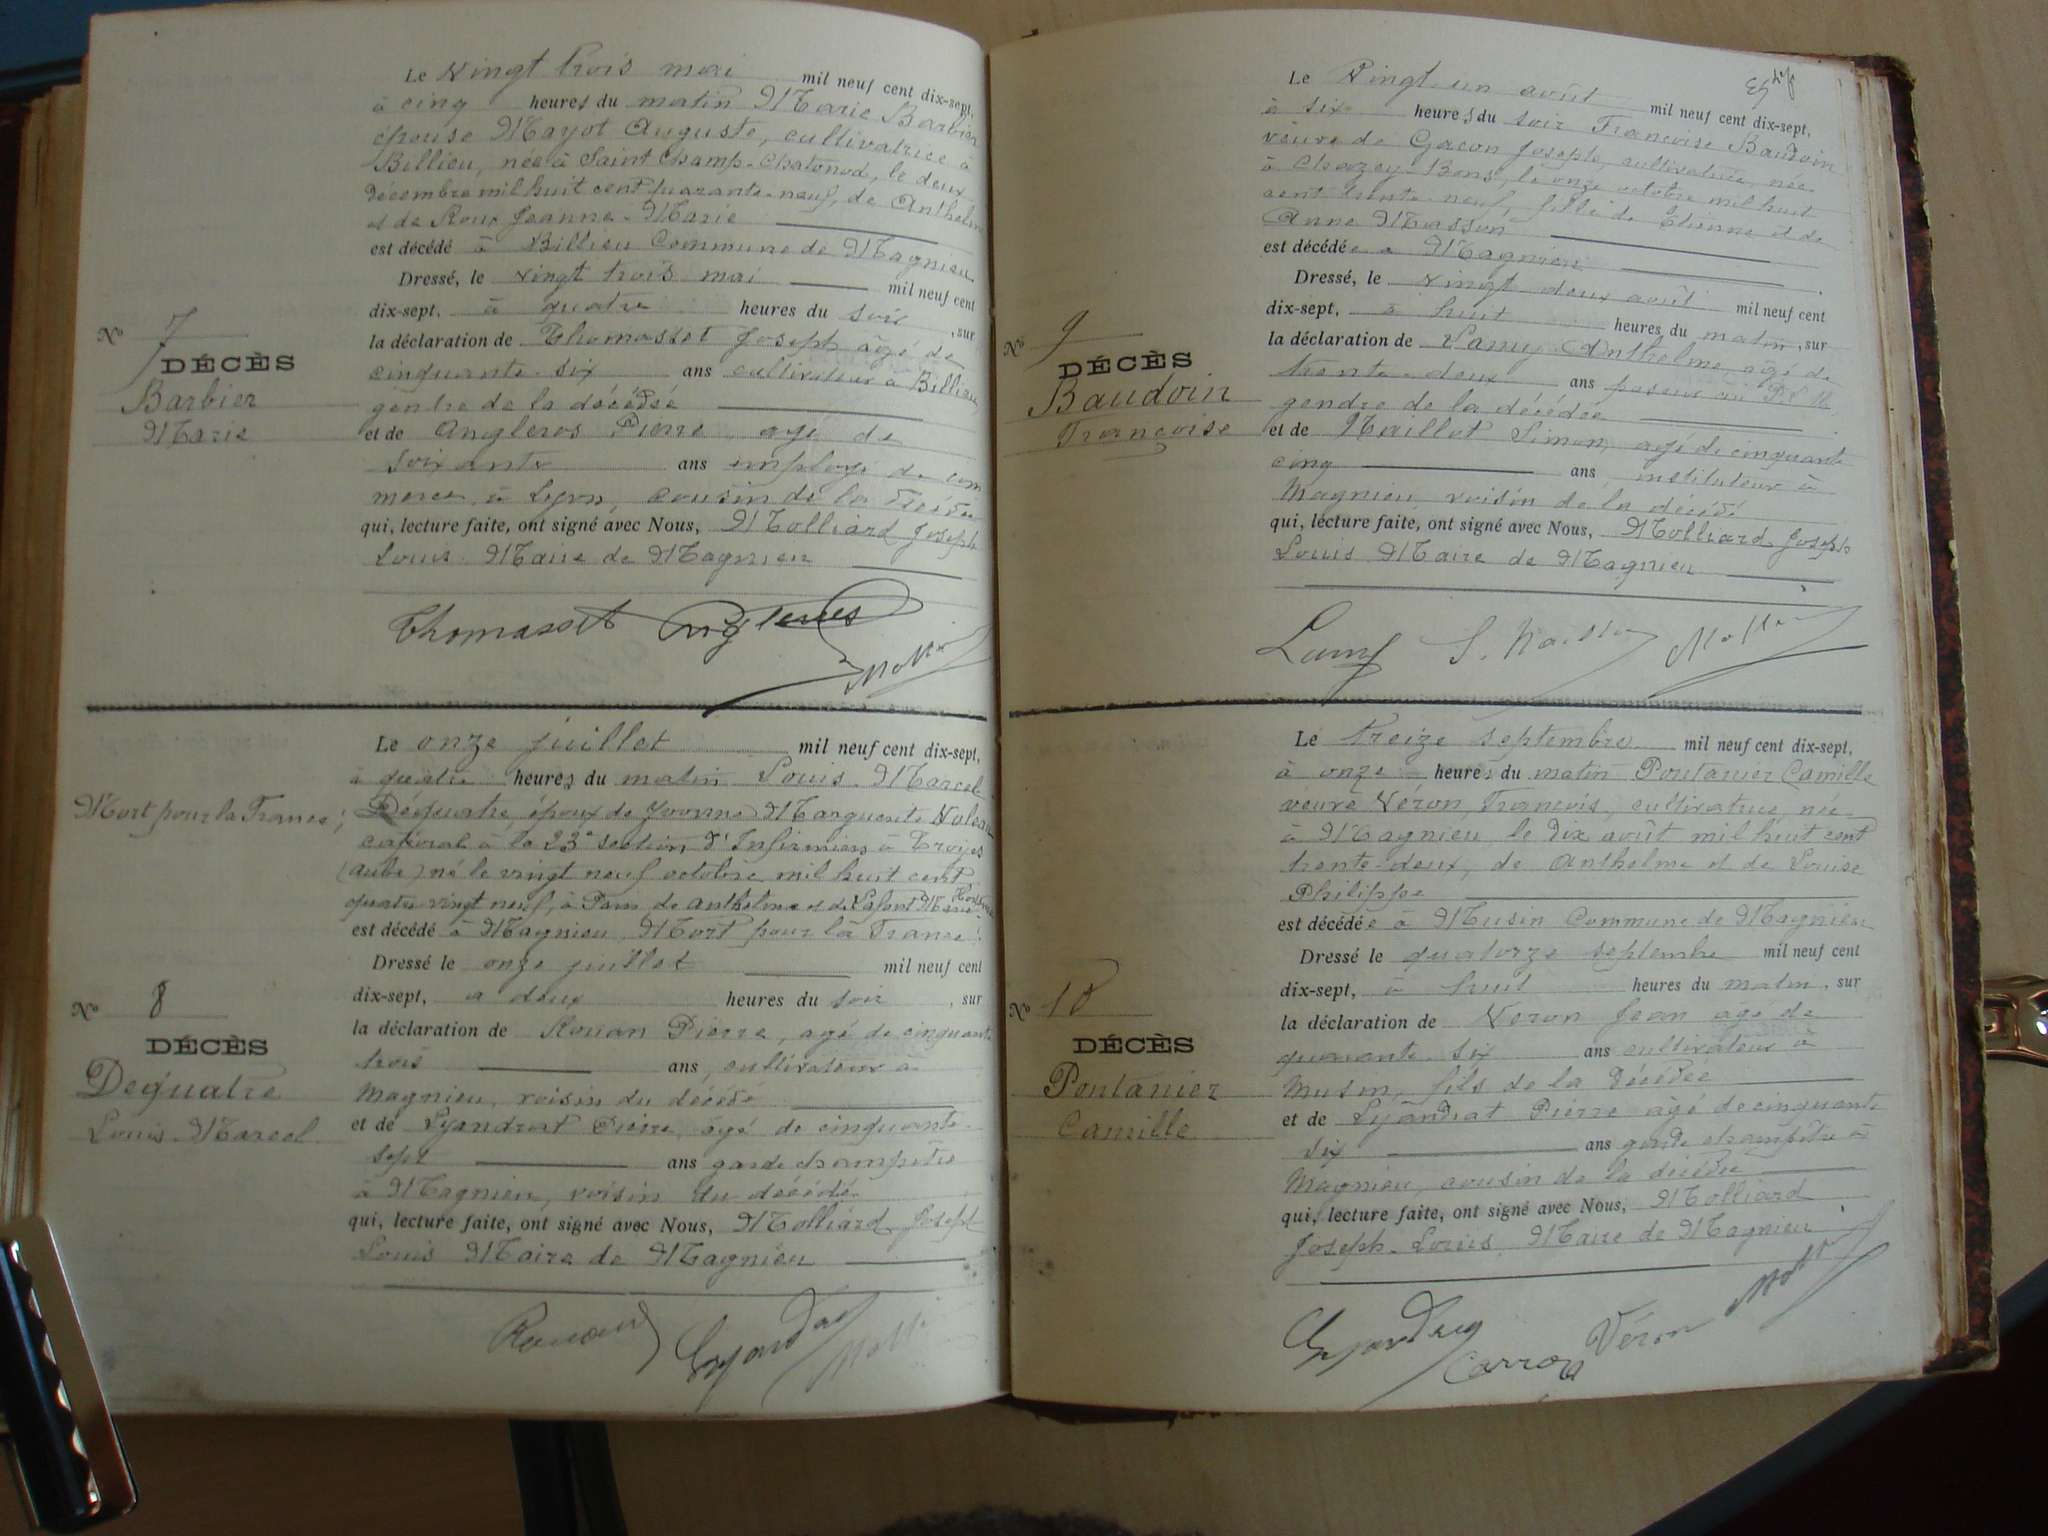 Le vingt trois mai mil neuf cent dix-sept,
à cinq heures du matin Marie Barbier
épouse Mayot Auguste, cultivatrice à
Billieu, née à Saint Champ-Chatonod, le deux
décembre mil huit cent quarante-neuf, de Anthelme
et de Roux Jeanne-Marie
est décédé à Billieu Commune de Magnieu
Dressé, le vingt trois mai mil neuf cent
dix-sept, à quatre heures du soir, sur
la déclaration de Thomasset Joseph âgé de
cinquante-six ans cultivateur à Billieu
gendre de la décédée
et de Angleros Pierre, agé de
soixante ans employé de com
merce à Lyon, cousin de la décédée
qui, lecture faite, ont signé avec Nous, Molliard Joseph
Louis Maire de Magnieu
No 7
DÉCÈS
Barbier
Marie
Thomasset
Le onze juillet mil neuf cent dix-sept,
à quatre heures du matin Louis Marcel
Dequatre, époux de Yvonne Marguerite
caporal à la 23e section d'Infirmiers à Troyes
(Aube) né le vingt neuf octobre mil huit cent
quatre vingt neuf, à Paris de Anthelme et de Lafont Marie
est décédé à Magnieu, Mort pour la France.
Dressé le onze juillet mil neuf cent
dix-sept, a deux heures du soir, sur
la déclaration de Rouan Pierre, agé de cinquante
trois ans, cultivateur à
Magnieu, voisin du décédé
et de Lyandrat Pierre, âgé de cinquante-
sept ans garde champêtre
à Magnieu, voisin du décédé
qui, lecture faite, ont signé avec Nous, Molliard Joseph
Louis Maire de Magnieu
Mort pour la France;
No 8
DÉCÈS
Dequatre
Louis Marcel
Le Vingt-un août mil neuf cent dix-sept,
à six heures du soir Françoise Baudoin
veuve de Gacon Joseph, cultivatrice, née
à Chazey-Bons, le onze octobre mil huit
cent trente-neuf, fille de Etienne et de
Anne Masson
est décédée a Magnieu
Dressé, le vingt deux août mil neuf cent
dix-sept, à huit heures du matin, sur
la déclaration de Lamy Anthelme, agé de
trente-deux ans poseur au P L M
gendre de la décédée
et de Naillot Simon, agé de cinquante
cinq ans, instituteur à
Magnieu, voisin de la décédé
qui, lecture faite, ont signé avec Nous, Molliard Joseph
Louis Maire de Magnieu
No 9
DÉCÈS
Baudoin
Françoise
Lamy
Le treize septembre mil neuf cent dix-sept,
à onze heures du matin Pontanier Camille
veuve Véron, François, cultivatrice, née
à Magnieu le dix août mil huit cent
trente-deux, de Anthelme et de Louise
Philippe
est décédée à Musin Commune de Magnieu
Dressé le quatorze septembre mil neuf cent
dix-sept, à huit heures du matin, sur
la déclaration de Veron Jean agé de
quarante six ans cultivateur à
Musin, fils de la décédée
et de Lyandrat Pierre âgé de cinquante
six ans garde champêtre à
Magnieu, cousin de la décédée
qui, lecture faite, ont signé avec Nous, Molliard
Joseph-Louis Maire de Magnieu
No 10
DÉCÈS
Pontanier
Camille
Véron